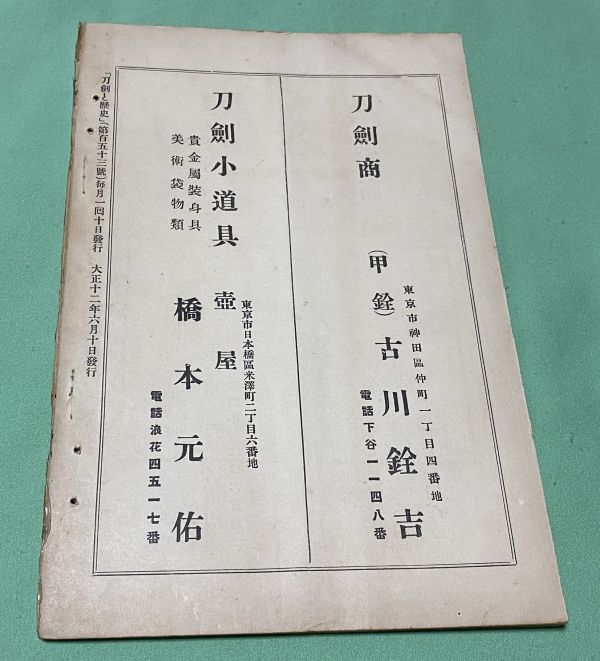 刀劍商
（甲銓）
東京市神田區仲町一丁目四番地
古川銓吉
電話下谷一一四八番
刀劍小道具
貴金屬裝身具
美術袋物類
東京市日本橋區米澤町二丁目六番地
壺屋
橋本元佑
電話浪花四五一七番
「刀劍と歷史」（第百五十三號）每月一回十日發行　大正十二年六月十日發行